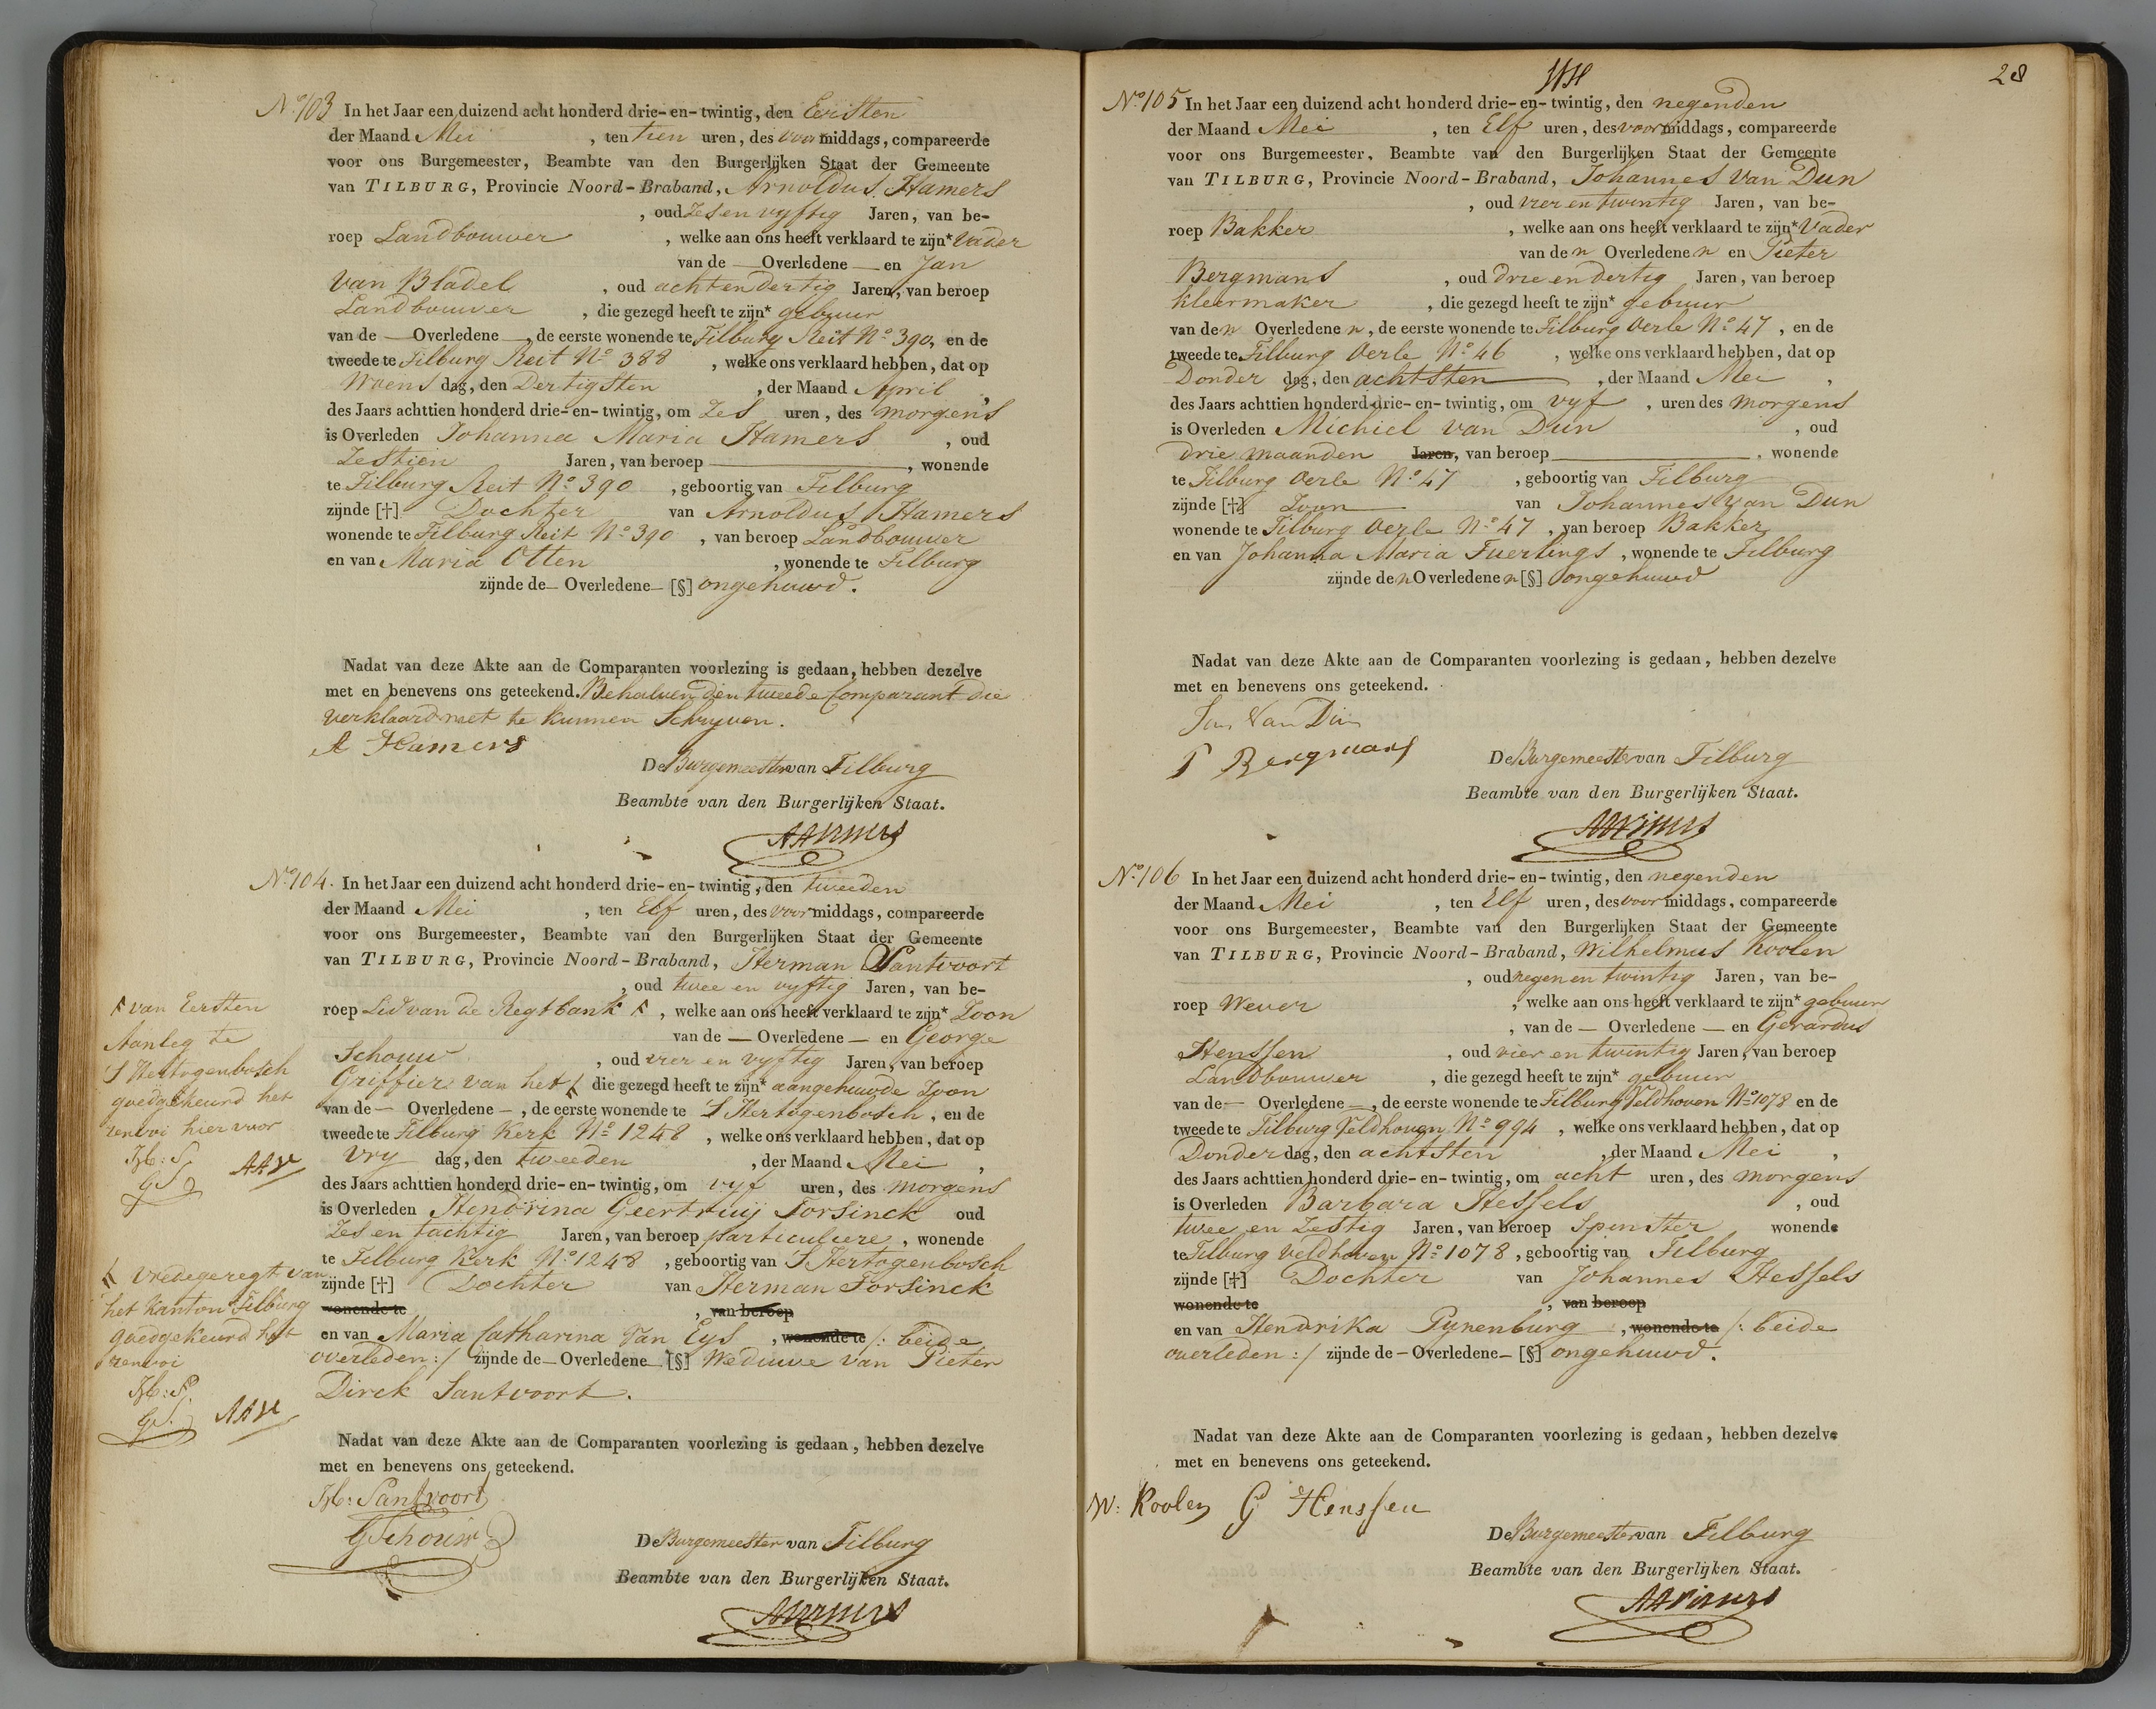 No 103 In het Jaar een duizend acht honderd drie-en-twintig, den Eersten
der Maand Mei , ten tien uren, des voormiddags, compareerde
voor ons Burgemeester, Beambte van den Burgerlijken Staat der Gemeente
van TILBURG, Provincie Noord-Braband, Arnoldus Hamers
, oud Zes en vyftig Jaren, van be-
roep Landbouwer , welke aan ons heeft verklaard te zijn* Vader
van de — Overledene — en Jan
Van Bladel , oud acht en dertig Jaren, van beroep
Landbouwer , die gezegd heeft te zijn* gebuur
van de — Overledene —, de eerste wonende te Tilburg Reit No 390, en de
tweede te Tilburg Reit No 388 , welke ons verklaard hebben, dat op
Woens dag, den Dertigsten , der Maand April ,
des Jaars achttien honderd drie-en-twintig, om Zes uren, des morgens
is Overleden Johanna Maria Hamers , oud
Zestien Jaren, van beroep — , wonende
te Tilburg Reit No 390 , geboortig van Tilburg
zijnde [†] Dochter van Arnoldus Hamers
wonende te Tilburg Reit No 390 , van beroep Landbouwer
en van Maria Otten , wonende te Tilburg
zijnde de — Overledene — [§] ongehuwd.
Nadat van deze Akte aan de Comparanten voorlezing is gedaan, hebben dezelve
met en benevens ons geteekend. Behalven den tweede Comparant die
verklaard niet te kunnen Schryven.
A Hamers
De Burgemeester van Tilburg
Beambte van den Burgerlijken Staat.
No 104. In het Jaar een duizend acht honderd drie-en-twintig, den tweeden
der Maand Mei , ten Elf uren, des voormiddags, compareerde
voor ons Burgemeester, Beambte van den Burgerlijken Staat der Gemeente
van TILBURG, Provincie Noord-Braband, Herman Santvoort
, oud twee en vyftig Jaren, van be-
roep Lid van de Regtbank , welke aan ons heeft verklaard te zijn* Zoon
van de — Overledene — en George
Schouw , oud vier en vyftig Jaren, van beroep
Griffier van het die gezegd heeft te zijn* aangehuwde Zoon
van de — Overledene —, de eerste wonende te S Hertogenbosch, en de
tweede te Tilburg Kerk No 1248 , welke ons verklaard hebben, dat op
Vry dag, den tweeden , der Maand Mei ,
des Jaars achttien honderd drie-en-twintig, om vyf uren, des morgens
is Overleden Hendrina Geertruij Torsinck oud
Zes en tachtig Jaren, van beroep particuliere , wonende
te Tilburg Kerk No 1248 , geboortig van S Hertogenbosch
zijnde [†] Dochter van Herman Torsinck
wonende te , van beroep
en van Maria Catharina Van Eys , wonende te /: beide
overleden :/ zijnde de — Overledene — [§] Weduwe van Pieter
Dirck Santvoort.
van Eersten
Aanleg te
S Hertogenbosch
goedgekeurd het
renvoi hier voor
H: S.
GS
AAV
vredegeregt van
het Kanton Tilburg
goedgekeurd het
renvoi
H: S.
GS.
AAV
Nadat van deze Akte aan de Comparanten voorlezing is gedaan, hebben dezelve
met en benevens ons geteekend.
H: Santvoort
GSchouw
De Burgemeester van Tilburg
Beambte van den Burgerlijken Staat.
28
No 105 In het Jaar een duizend acht honderd drie-en-twintig, den negenden
der Maand Mei , ten Elf uren, des voormiddags, compareerde
voor ons Burgemeester, Beambte van den Burgerlijken Staat der Gemeente
van TILBURG, Provincie Noord-Braband, Johannes Van Dun
, oud vier en twintig Jaren, van be-
roep Bakker , welke aan ons heeft verklaard te zijn* Vader
van den Overledenen en Pieter
Bergmans , oud drie en dertig Jaren, van beroep
kleermaker , die gezegd heeft te zijn* gebuur
van den Overledenen, de eerste wonende te Tilburg Oerle No 47 , en de
tweede te Tilburg Oerle No 46 , welke ons verklaard hebben, dat op
Donder dag, den achtsten , der Maand Mei ,
des Jaars achttien honderd drie-en-twintig, om vyf , uren des morgens
is Overleden Michiel van Dun , oud
drie maanden Jaren, van beroep — , wonende
te Tilburg Oerle No 47 , geboortig van Tilburg
zijnde [†] Zoon van Johannes Van Dun
wonende te Tilburg Oerle No 47 , van beroep Bakker
en van Johanna Maria Fuerlings , wonende te Tilburg
zijnde den Overledenen [§] ongehuwd
Nadat van deze Akte aan de Comparanten voorlezing is gedaan, hebben dezelve
met en benevens ons geteekend.
Jan Van Dun
P Bergmans
De Burgemeester van Tilburg
Beambte van den Burgerlijken Staat.
No 106 In het Jaar een duizend acht honderd drie-en-twintig, den negenden
der Maand Mei , ten Elf uren, des voormiddags, compareerde
voor ons Burgemeester, Beambte van den Burgerlijken Staat der Gemeente
van TILBURG, Provincie Noord-Braband, Wilhelmus Koolen
, oud negen en twintig Jaren, van be-
roep Wever , welke aan ons heeft verklaard te zijn* gebuur
, van de — Overledene — en Gerardus
Henssen , oud vier en twintig Jaren, van beroep
Landbouwer , die gezegd heeft te zijn* gebuur
van de — Overledene —, de eerste wonende te Tilburg Veldhoven No 1078 en de
tweede te Tilburg Veldhoven No 994 , welke ons verklaard hebben, dat op
Donder dag, den achtsten , der Maand Mei ,
des Jaars achttien honderd drie-en-twintig, om acht uren, des morgens
is Overleden Barbara Hessels , oud
twee en Zestig Jaren, van beroep Spinster wonende
te Tilburg Veldhoven No 1078 , geboortig van Tilburg
zijnde [†] Dochter van Johannes Hessels
wonende te , van beroep
en van Hendrika Pynenburg , wonende te /: beide
overleden :/ zijnde de — Overledene — [§] ongehuwd.
Nadat van deze Akte aan de Comparanten voorlezing is gedaan, hebben dezelve
met en benevens ons geteekend.
W. Koolen G Henssen
De Burgemeester van Tilburg
Beambte van den Burgerlijken Staat.